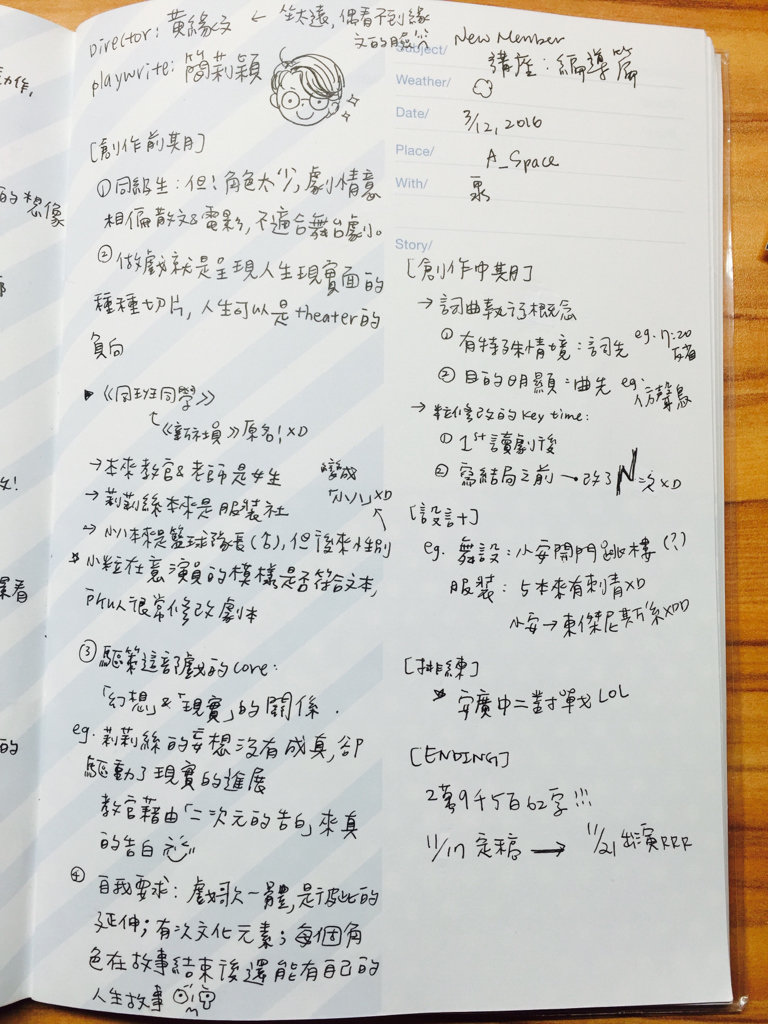 Director: 黃緣文 ← 坐太遠,偶看不到緣
文的臉
playwrite: 簡莉穎
[創作前期]
①同級生:但!角色太少,劇情意
相偏散文&電影,不適合舞台劇。
②做戲就是呈現人生現實面的
種種切片,人生可以是theater的
負向
▸《同班同學》
《新社員》原名!XD
→本來教官&老師是女生
→莉莉絲本來是服裝社
→小八本來是籃球隊長(合),但後來性別
變成
「小八」XD
*小粒在意演員的模樣是否符合文本,
所以很常修改劇本
③驅策這部戲的core:
「幻想」&「現實」的關係.
eg.莉莉絲的妄想沒有成真,卻
驅動了現實的進展
教官藉由「二次元的告白」來真
的告白
④自我要求:戲歌一體,是彼此的
延伸;有次文化元素;每個角
色在故事結束後還能有自己的
人生故事
Subject/ New Member
講座:編導篇
Weather/
Date/ 3/12,2016
Place/ A_Space
With/
Story/
[創作中期]
→詞曲執行概念
①有特殊情境:詞先 eg.17:20
②目的明顯:曲先 eg.
→粒修改的key time:
①1st讀劇後
②寫結局之前→改了N次XD
[設計]
eg. 舞設:小安開門跳樓(?)
服裝:5本來有刺青XD
小安→東傑尼斯系XDD
[排練]
*安廣中二對戰LOL
[ENDING]
2萬9千5百62字!!!
11/17 定稿 → 11/21 出演RRR